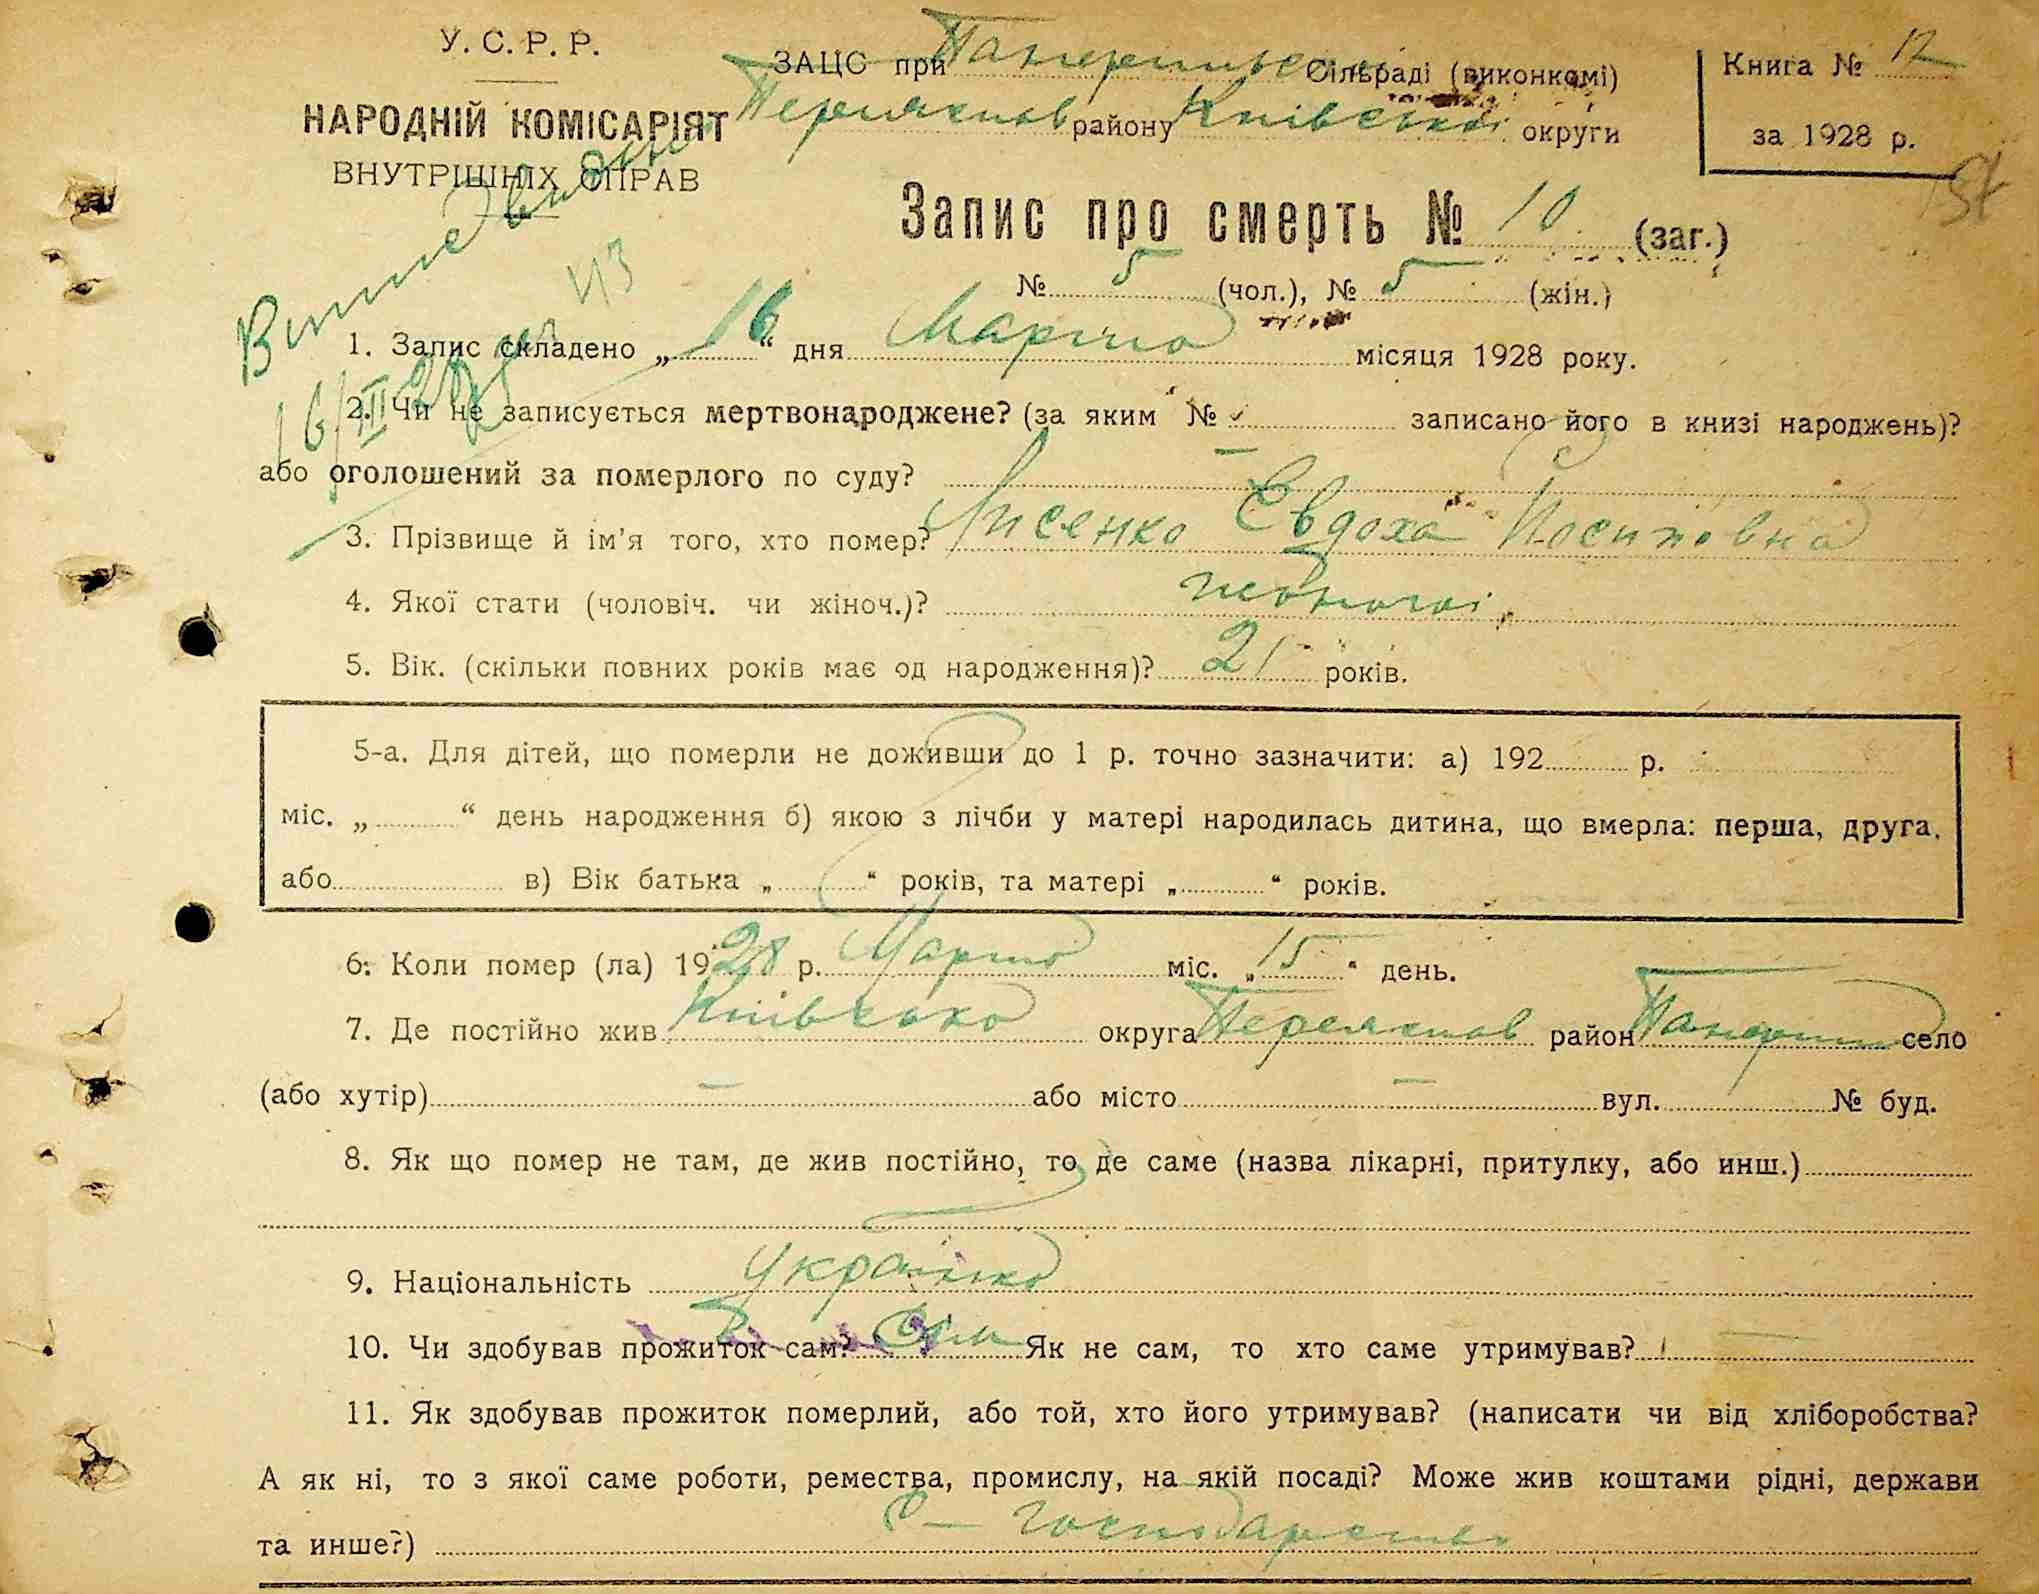 У. С. Р. Р.
НАРОДНІЙ КОМІСАРІЯТ
ВНУТРІШНІХ СПРАВ
ЗАЦС при Панфильск Сільраді (виконкомі)
Переяслав району Київської округи
Книга № 12
за 1928 р.
157
Запис про смерть № 10 (заг.)
№ 5 (чол.), № 5 (жін.)
43
1. Запис складено „16“ дня Марта місяця 1928 року.
16/III 28
2. Чи не записується мертвонароджене? (за яким № записано його в книзі народжень)?
або оголошений за померлого по суду? —
3. Прізвище й ім’я того, хто помер? Лисенко Євдоха Йосиповна
4. Якої стати (чоловіч. чи жіноч.)? жіночої
5. Вік. (скільки повних років має од народження)? 21 років.
5-а. Для дітей, що померли не доживши до 1 р. точно зазначити: а) 192 р.
міс. „ “ день народження б) якою з лічби у матері народилась дитина, що вмерла: перша, друга,
або в) Вік батька „ “ років, та матері „ “ років.
6. Коли помер (ла) 1928 р. Марта міс. „15“ день.
7. Де постійно жив Київська округа Переяслав район село
(або хутір) — або місто — вул. № буд.
8. Як що помер не там, де жив постійно, то де саме (назва лікарні, притулку, або инш.)
9. Національність Українка
10. Чи здобував прожиток сам? Сам Як не сам, то хто саме утримував? —
11. Як здобував прожиток померлий, або той, хто його утримував? (написати чи від хліборобства?
А як ні, то з якої саме роботи, ремества, промислу, на якій посаді? Може жив коштами рідні, держави
та инше?) С – господарство